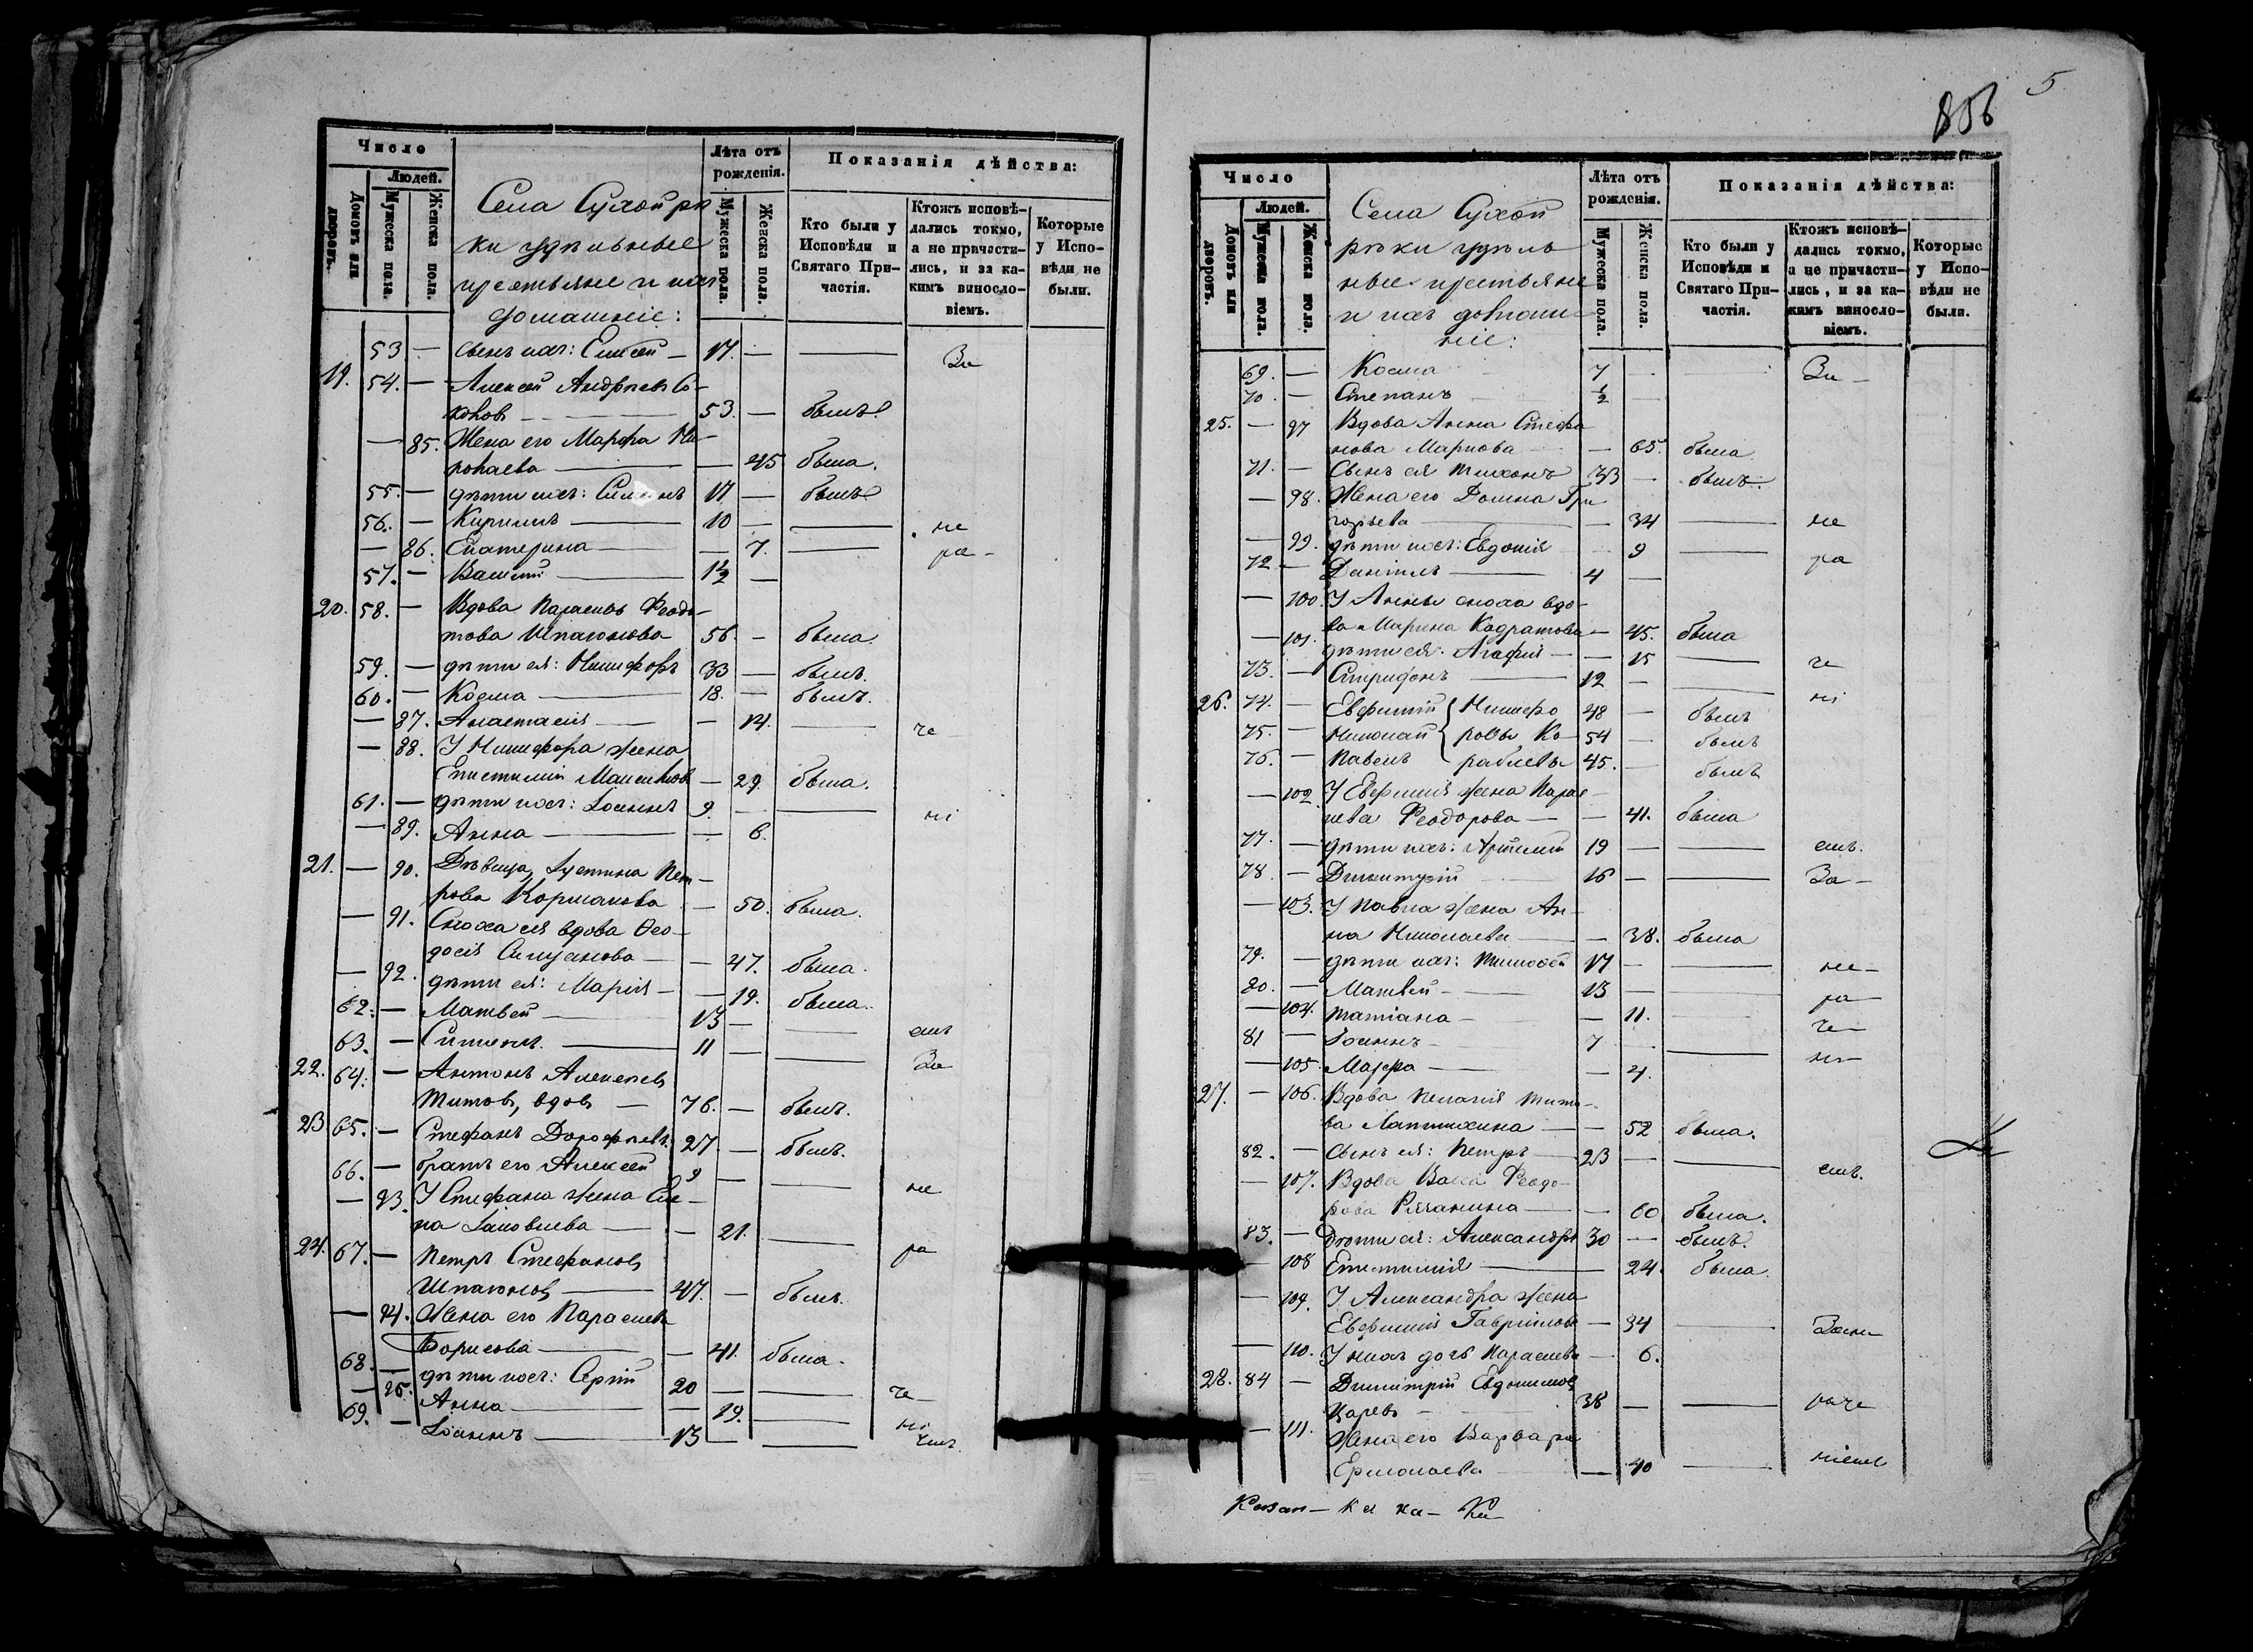 Число
Людей.
Домовъ или дворовъ.
Мужеска пола.
Женска пола.
Села Сухой рѣ
ки удѣльные
крестьяне и ихъ
домашніе:
Лѣта отъ рожденія.
Мужеска пола.
Женска пола.
Показанія дѣйства:
Кто были у Исповѣди и Святаго Причастія.
Ктожъ исповѣдались токмо, а не причастились, и за какимъ винословіемъ.
Которые у Исповѣди не были.
53 — сынъ ихъ: Елисей — 17. — — За
19. 54. — Алексей Андреевъ Со-
ковъ — 53. — былъ
— 85. Жена его Марфа Ни-
колаева — — 45 была.
55. — дѣти ихъ: Симеонъ 17 — былъ
56. — Кириллъ — 10 — — ма
— 86. Екатерина — — 7. — ло-
57. — Василій — 1½ —
20. 58. — Вдова Параскева Феодо-
това Шпагонова 56. — была
59. — дѣти ея: Никифоръ 33 — былъ.
60. — Косма — 18. — былъ.
— 87. Анастасія — — 14. — лѣ
— 88. У Никифора жена
Епистимія Максимова — 29. была.
61. — дѣти ихъ: Іоаннъ 9. — — ні
— 89. Анна — — 6.
21. — 90. Дѣвица, Іустина Пет-
рова Кормакова — 50. была.
— 91. Сноха ея вдова Ѳео-
досія — 47. была.
— 92. дѣти ея: Марія — — 19. была.
62. — Матвей — 13 — — емъ
63. — Симеонъ. — 11 — — За
22. 64. — Антонъ Алексеевъ
Титовъ, вдовъ — 76. — былъ.
23. 65. — Стефанъ Дорофеевъ. 27. — былъ.
66. — братъ его Алексей 9 — — ма
— 93. У Стефана жена Еле-
на Іаковлева — — 21. — ло
24. 67. — Петръ Стефановъ
Шпагоновъ — 47. — былъ.
— 94. Жена его Параскева
Борисова — — 41. была.
68. — дѣти ихъ: Сергій 20 — — лѣ
— 95. Анна — — 19. — ні
69. — Іоаннъ — 13 — — емъ.
856
5
Число
Людей.
Домовъ или дворовъ.
Мужеска пола.
Женска пола.
Села Сухой
рѣки удѣль
ные крестьяне
и ихъ домаш-
ніе:
Лѣта отъ рожденія.
Мужеска пола.
Женска пола.
Показанія дѣйства:
Кто были у Исповѣди и Святаго Причастія.
Ктожъ исповѣдались токмо, а не причастились, и за какимъ винословіемъ.
Которые у Исповѣди не были.
69. — Косма 7 За —
70. — Степанъ ½
25. — 97 Вдова Анна Стефа
нова Маркова — 65. была
71. — Сынъ ея Тихонъ 33 — былъ.
— 98. Жена его Домна Гри
горьева — — 34 — ма
— 99. дѣти ихъ: Евдокія — 9 — ло
72 — Даніилъ — 4 —
— 100. У Анны сноха вдо-
ва Марина Кодратова — 45. была
— 101. дѣти ея: Агафія — — 15 — лѣ
73. — Спиридонъ — 12 — — ні
26. 74. — Евфимій Никифо 48 — былъ
75. — Николай ровы Ко- 54 — былъ
76. — Павелъ раблевы 45. — былъ
— 102. У Евфимія жена Парас-
кева Феодорова — — 41. была
77. — дѣти ихъ: 19 — — емъ.
78. — Димитрій 16 — — За —
— 103. У Павла жена Ан-
на Николаева — — 38. была
79. — дѣти ихъ: Тимофей 17 — — ма-
80. — Матвей — 13 — — ло
— 104. Татіана — — 11. — лѣ
81 — Іоаннъ — 7 — — ні-
— 105. Марфа — — 4.
27. — 106. Вдова Пелагія Тито-
ва Лаптихина — — 52 была.
82. — Сынъ ея: Петръ — 23 — — емъ.
— 107. Вдова Васса Феодо-
рова Рязанкина — — 60 была.
83. — Дѣти ея: Александръ 30 — былъ.
— 108 Епистимія — 24. была.
— 109. У Александра жена
Евфимія Гаврилова — 34 — Зама-
— 110. У нихъ дочь Параскева — 6.
28. 84 — Димитрій Евдокимовъ
Царевъ — 38 — — лолѣ
— 111. Жена его Варвара
Ермолаева — 40 — ніемъ